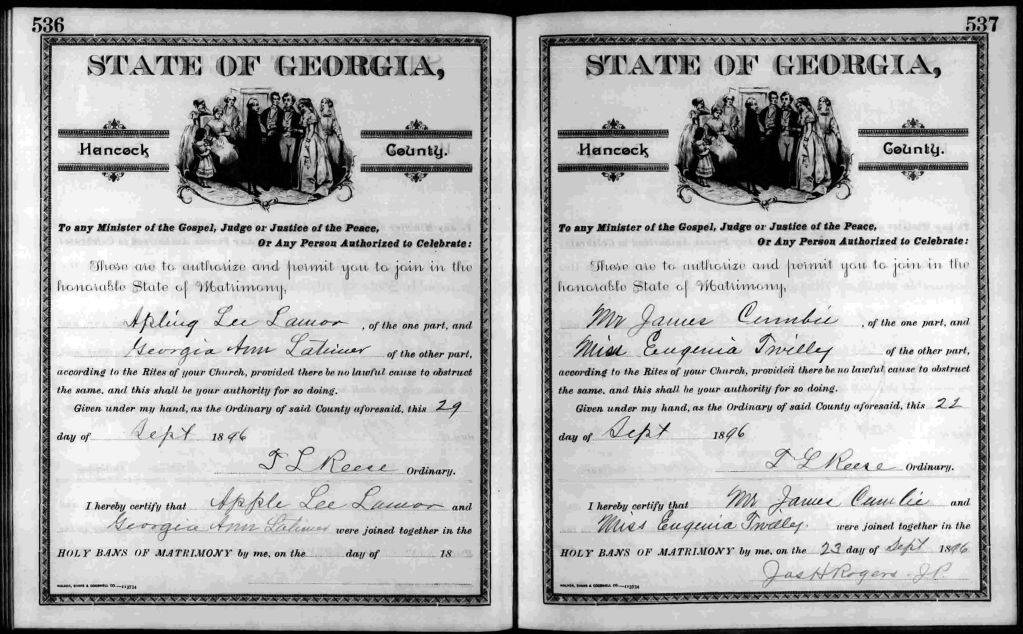 536
STATE OF GEORGIA,
Hancock County.
To any Minister of the Gospel, Judge or Justice of the Peace,
Or Any Person Authorized to Celebrate:
These are to authorize and permit you to join in the
honorable State of Matrimony,
Apling Lee Lamor, of the one part, and
Georgia Ann Latimer of the other part,
according to the Rites of your Church, provided there be no lawful cause to obstruct
the same, and this shall be your authority for so doing.
Given under my hand, as the Ordinary of said County aforesaid, this 29
day of Sept 1896
T L Reese Ordinary.
I hereby certify that Apple Lee Lamor and
Georgia Ann Latimer were joined together in the
HOLY BANS OF MATRIMONY by me, on the day of 18
WALKER, EVANS & COGSWELL CO.
537
STATE OF GEORGIA,
Hancock County.
To any Minister of the Gospel, Judge or Justice of the Peace,
Or Any Person Authorized to Celebrate:
These are to authorize and permit you to join in the
honorable State of Matrimony,
Mr James Cumbie, of the one part, and
Miss Eugenia Twilley of the other part,
according to the Rites of your Church, provided there be no lawful cause to obstruct
the same, and this shall be your authority for so doing.
Given under my hand, as the Ordinary of said County aforesaid, this 22
day of Sept 1896
T L Reese Ordinary.
I hereby certify that Mr James Cumbie and
Miss Eugenia Twilley were joined together in the
HOLY BANS OF MATRIMONY by me, on the 23 day of Sept 1896
Jas H Rogers J.P.
WALKER, EVANS & COGSWELL CO.